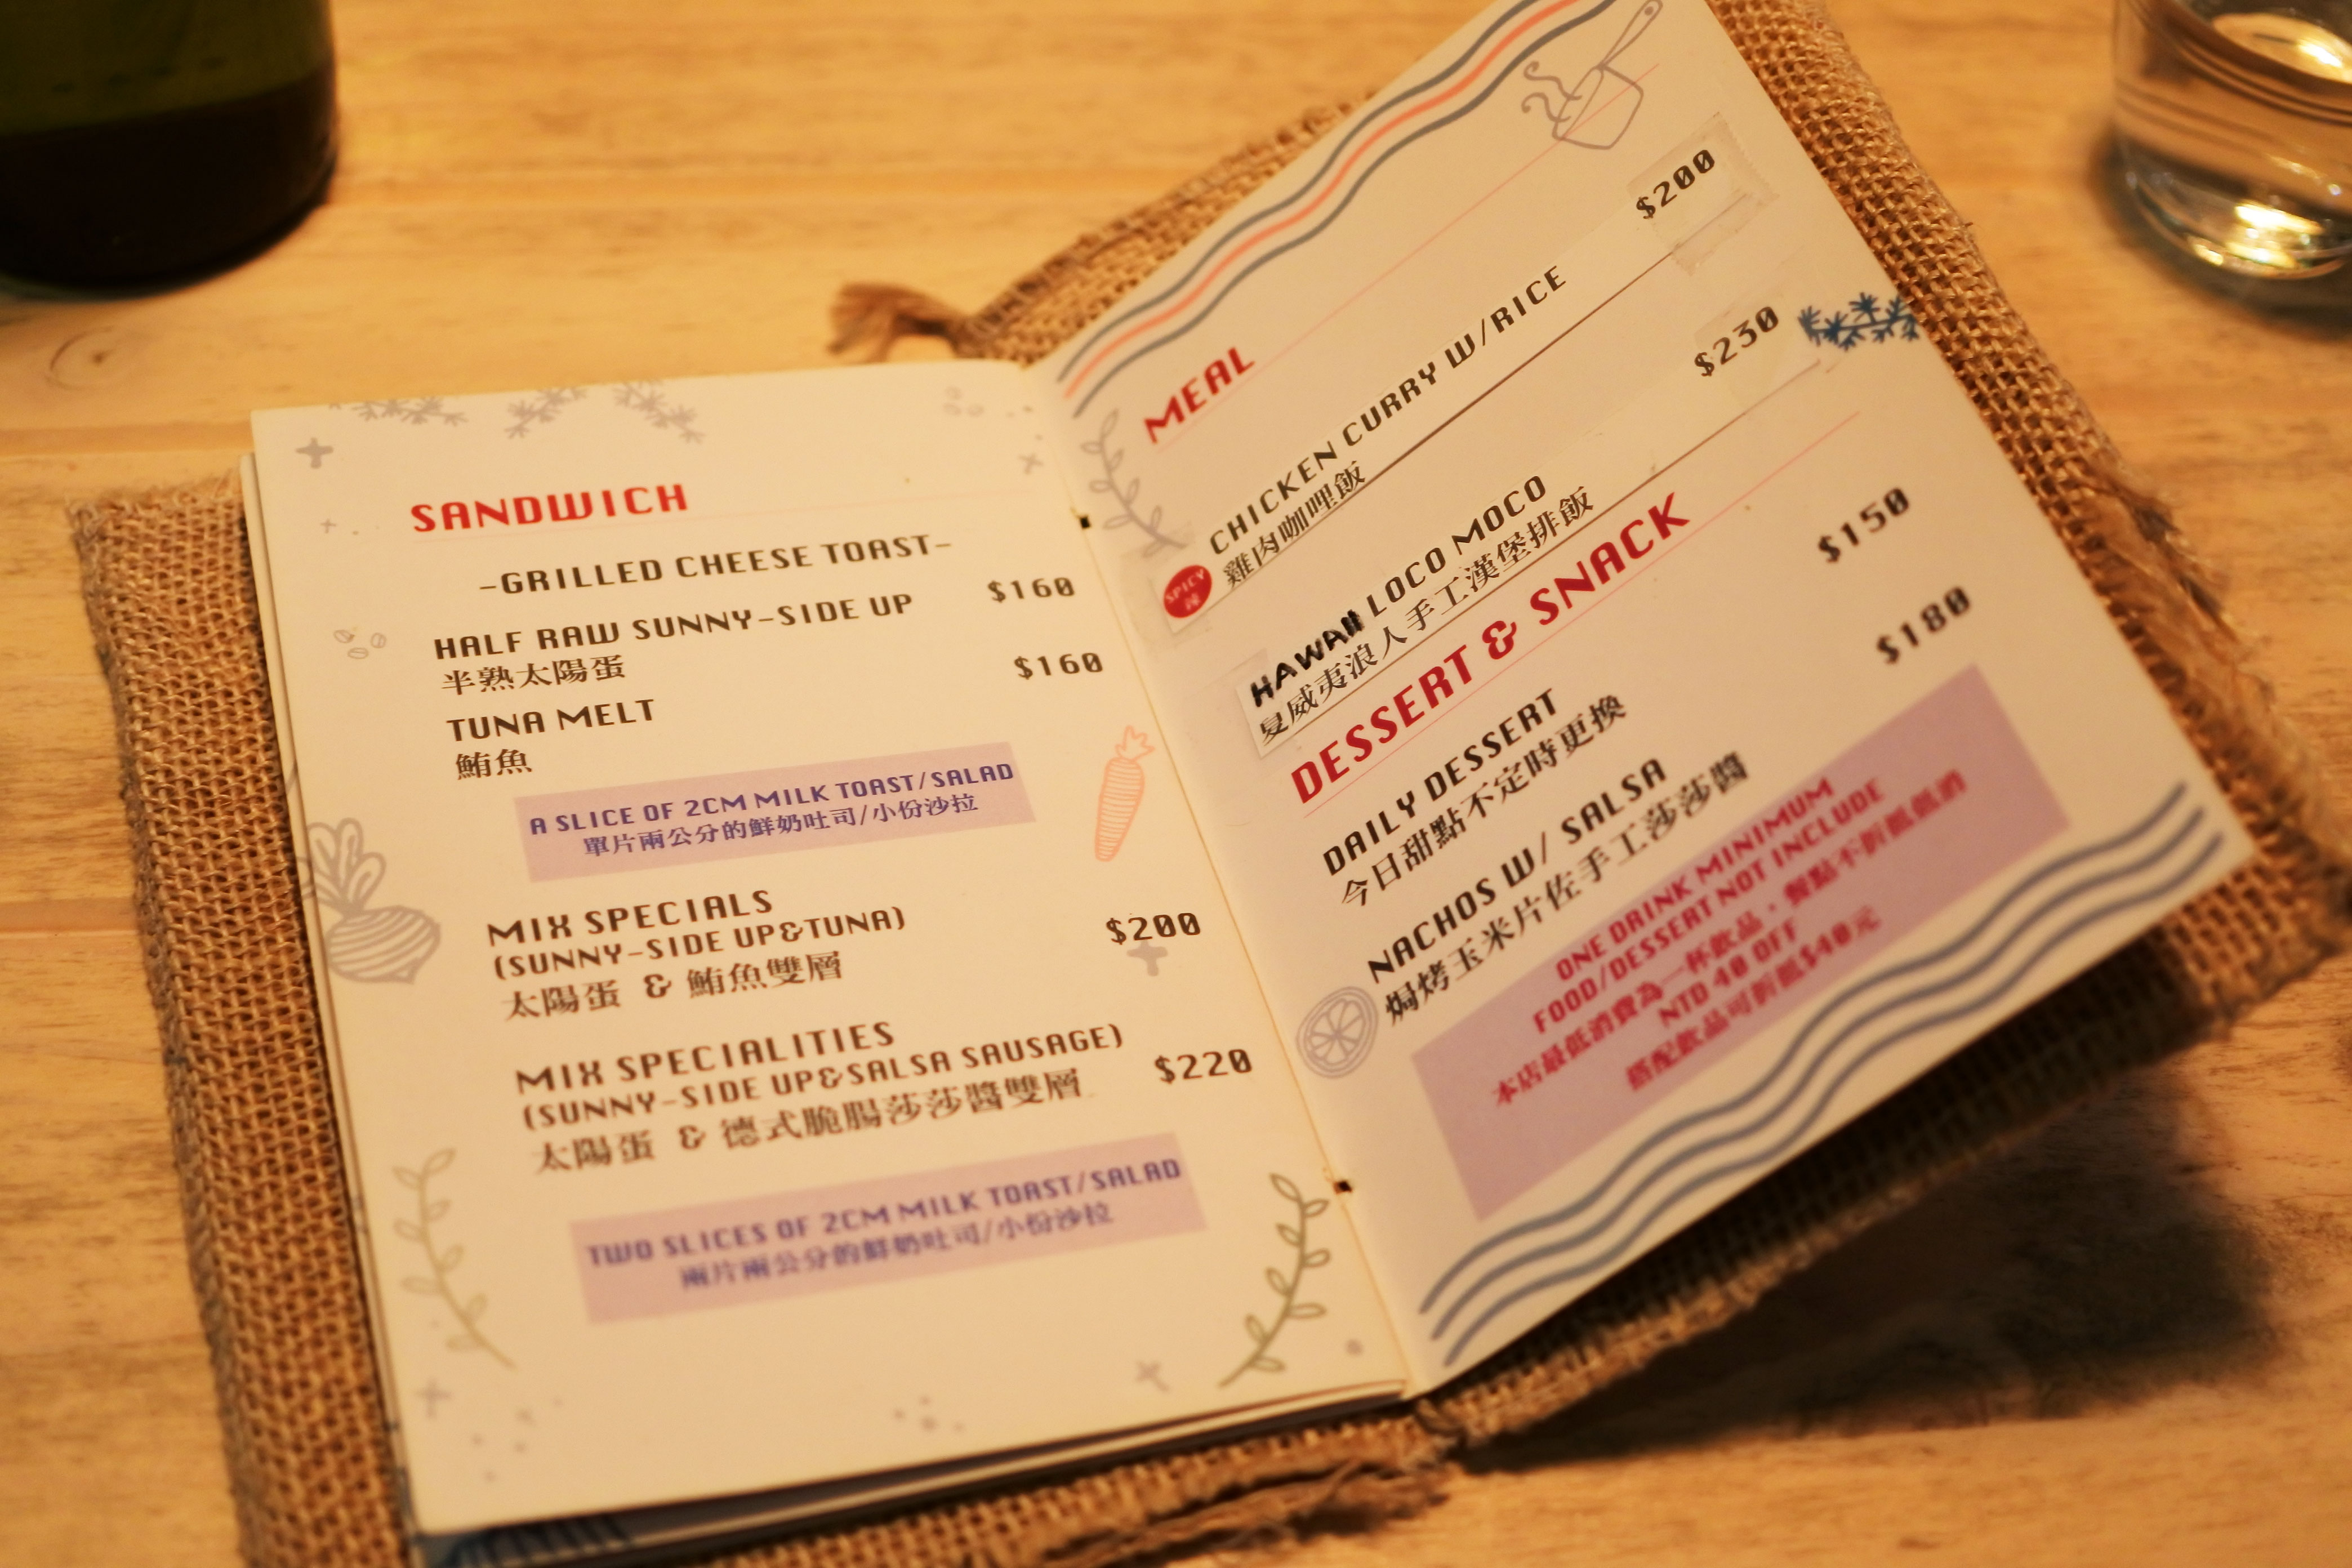 SANDWICH
-GRILLED CHEESE TOAST-
HALF RAW SUNNY-SIDE UP $160
半熟太陽蛋
TUNA MELT $160
鮪魚
A SLICE OF 2CM MILK TOAST/SALAD
單片兩公分的鮮奶吐司/小份沙拉
MIX SPECIALS
(SUNNY-SIDE UP&TUNA) $200
太陽蛋 & 鮪魚雙層
MIX SPECIALITIES
(SUNNY-SIDE UP&SALSA SAUSAGE) $220
太陽蛋 & 德式脆腸莎莎醬雙層
TWO SLICES OF 2CM MILK TOAST/SALAD
兩片兩公分的鮮奶吐司/小份沙拉
MEAL
CHICKEN CURRY W/RICE $200
SPICY 辣
雞肉咖哩飯
HAWAII LOCO MOCO $230
夏威夷浪人手工漢堡排飯
DESSERT & SNACK
DAILY DESSERT $150
今日甜點不定時更換
NACHOS W/ SALSA $180
焗烤玉米片佐手工莎莎醬
ONE DRINK MINIMUM
FOOD/DESSERT NOT INCLUDE
本店最低消費為一杯飲品，餐點不折抵低消
NTD 40 OFF
搭配飲品可折抵$40元